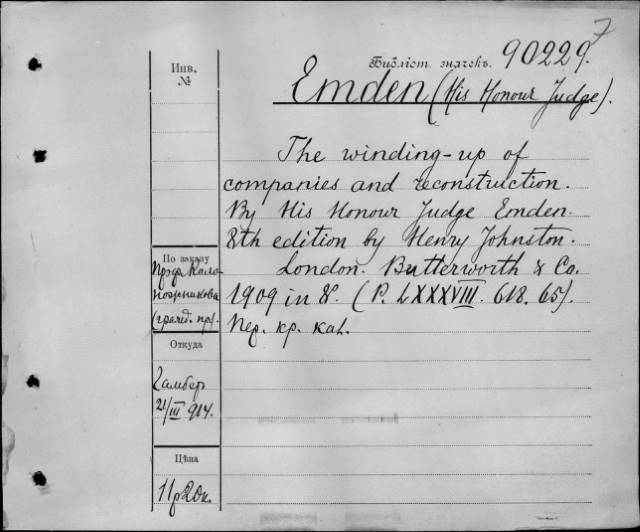 7
Библіот. значекъ. 90229.
Инв.
№
Emden (His Honour Judge).
The winding-up of
companies and reconstruction.
By His Honour Judge Emden.
8th edition by Henry Johnston.
London. Butterworth & Co.
1909 in 8º. (P. LXXXVIII. 618. 65).
Пер. кр. кал.
По заказу
Проф. Кало-
пожникова
(гражд. пр).
Откуда
Гамберъ
21/III 914.
Цѣна
11 р 20 к.